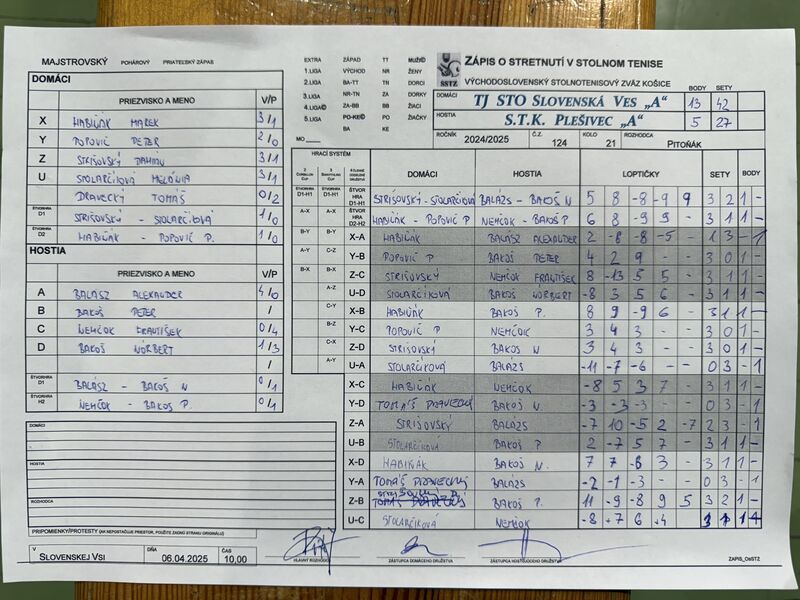 MAJSTROVSKÝ POHÁROVÝ PRIATEĽSKÝ ZÁPAS
DOMÁCI
PRIEZVISKO A MENO V/P
X HABIŇÁK MAREK 3/1
Y POPOVIČ PETER 2/0
Z STRIŠOVSKÝ DAMIÁN 3/1
U STOLARČÍKOVÁ MELÁNIA 3/1
DRAVECKÝ TOMÁŠ 0/2
ŠTVORHRA D1 STRIŠOVSKÝ - STOLARČÍKOVÁ 1/0
ŠTVORHRA D2 HABIŇÁK - POPOVIČ P. 1/0
HOSTIA
PRIEZVISKO A MENO V/P
A BALÁSZ ALEXANDER 4/0
B BAKOŠ PETER /
C NEMČOK FRANTIŠEK 0/4
D BAKOŠ NÓRBERT 1/3
/
ŠTVORHRA D1 BALÁSZ - BAKOŠ N 0/1
ŠTVORHRA H2 NEMČOK - BAKOŠ P. 0/1
DOMÁCI
HOSTIA
ROZHODCA
PRIPOMIENKY/PROTESTY (AK NEPOSTAČUJE PRIESTOR, POUŽITE ZADNÚ STRANU ORIGINÁLU)
V SLOVENSKEJ VSI DŇA 06.04.2025 ČAS 10,00
EXTRA ZÁPAD TT MUŽI
1.LIGA VÝCHOD NR ŽENY
2.LIGA BA-TT TN DORCI
3.LIGA NR-TN ZA DORKY
4.LIGA ZA-BB BB ŽIACI
5.LIGA PO-KE PO ŽIAČKY
BA KE
MO
SSTZ
ZÁPIS O STRETNUTÍ V STOLNOM TENISE
VÝCHODOSLOVENSKÝ STOLNOTENISOVÝ ZVÄZ KOŠICE
DOMÁCI TJ STO SLOVENSKÁ VES „A“ BODY 13 SETY 42
HOSTIA S.T.K. PLEŠIVEC „A“ 5 27
ROČNÍK 2024/2025 Č.Z. 124 KOLO 21 ROZHODCA PITOŇÁK
HRACÍ SYSTÉM
DOMÁCI HOSTIA LOPTIČKY SETY BODY
ŠTVORHRA D1-H1 STRIŠOVSKÝ - STOLARČÍKOVÁ BALÁZS - BAKOŠ N 5 8 -8 -9 9 3 2 1 -
A-X A-X ŠTVORHRA D2-H2 HABIŇÁK - POPOVIČ P NEMČOK - BAKOŠ P 6 8 -9 9 - 3 1 1 -
B-Y B-Y X-A HABIŇÁK BALÁSZ ALEXANDER 2 -8 -8 -5 - 1 3 - 1
A-Y C-Z Y-B POPOVIČ P BAKOŠ PETER 4 2 9 - - 3 0 1 -
B-X B-X Z-C STRIŠOVSKÝ NEMČOK FRANTIŠEK 8 -13 5 5 - 3 1 1 -
A-Z U-D STOLARČÍKOVÁ BAKOŠ NÓRBERT -8 3 5 6 - 3 1 1 -
C-Y X-B HABIŇÁK BAKOŠ P. 8 9 -9 6 - 3 1 1 -
B-Z Y-C POPOVIČ P NEMČOK 3 4 3 - - 3 0 1 -
C-X Z-D STRIŠOVSKÝ BAKOŠ N 3 4 3 - - 3 0 1 -
A-Y U-A STOLARČÍKOVÁ BALÁZS -11 -7 -6 - - 0 3 - 1
X-C HABIŇÁK NEMČOK -8 5 3 7 - 3 1 1 -
Y-D TOMÁŠ DRAVECKÝ BAKOŠ N. -3 -3 -3 - - 0 3 - 1
Z-A STRIŠOVSKÝ BALÁZS -7 10 -5 2 -7 2 3 - 1
U-B STOLARČÍKOVÁ BAKOŠ P 2 -7 5 7 - 3 1 1 -
X-D HABIŇÁK BAKOŠ N. 7 7 -8 3 - 3 1 1 -
Y-A TOMÁŠ DRAVECKÝ BALÁZS -2 -1 -3 - - 0 3 - 1
Z-B BAKOŠ P. 11 -9 -8 9 5 3 2 1 -
U-C STOLARČÍKOVÁ NEMČOK
HLAVNÝ ROZHODCA
ZÁSTUPCA DOMÁCEHO DRUŽSTVA
ZÁSTUPCA HOSŤUJÚCEHO DRUŽSTVA
ZAPIS_OsSTZ